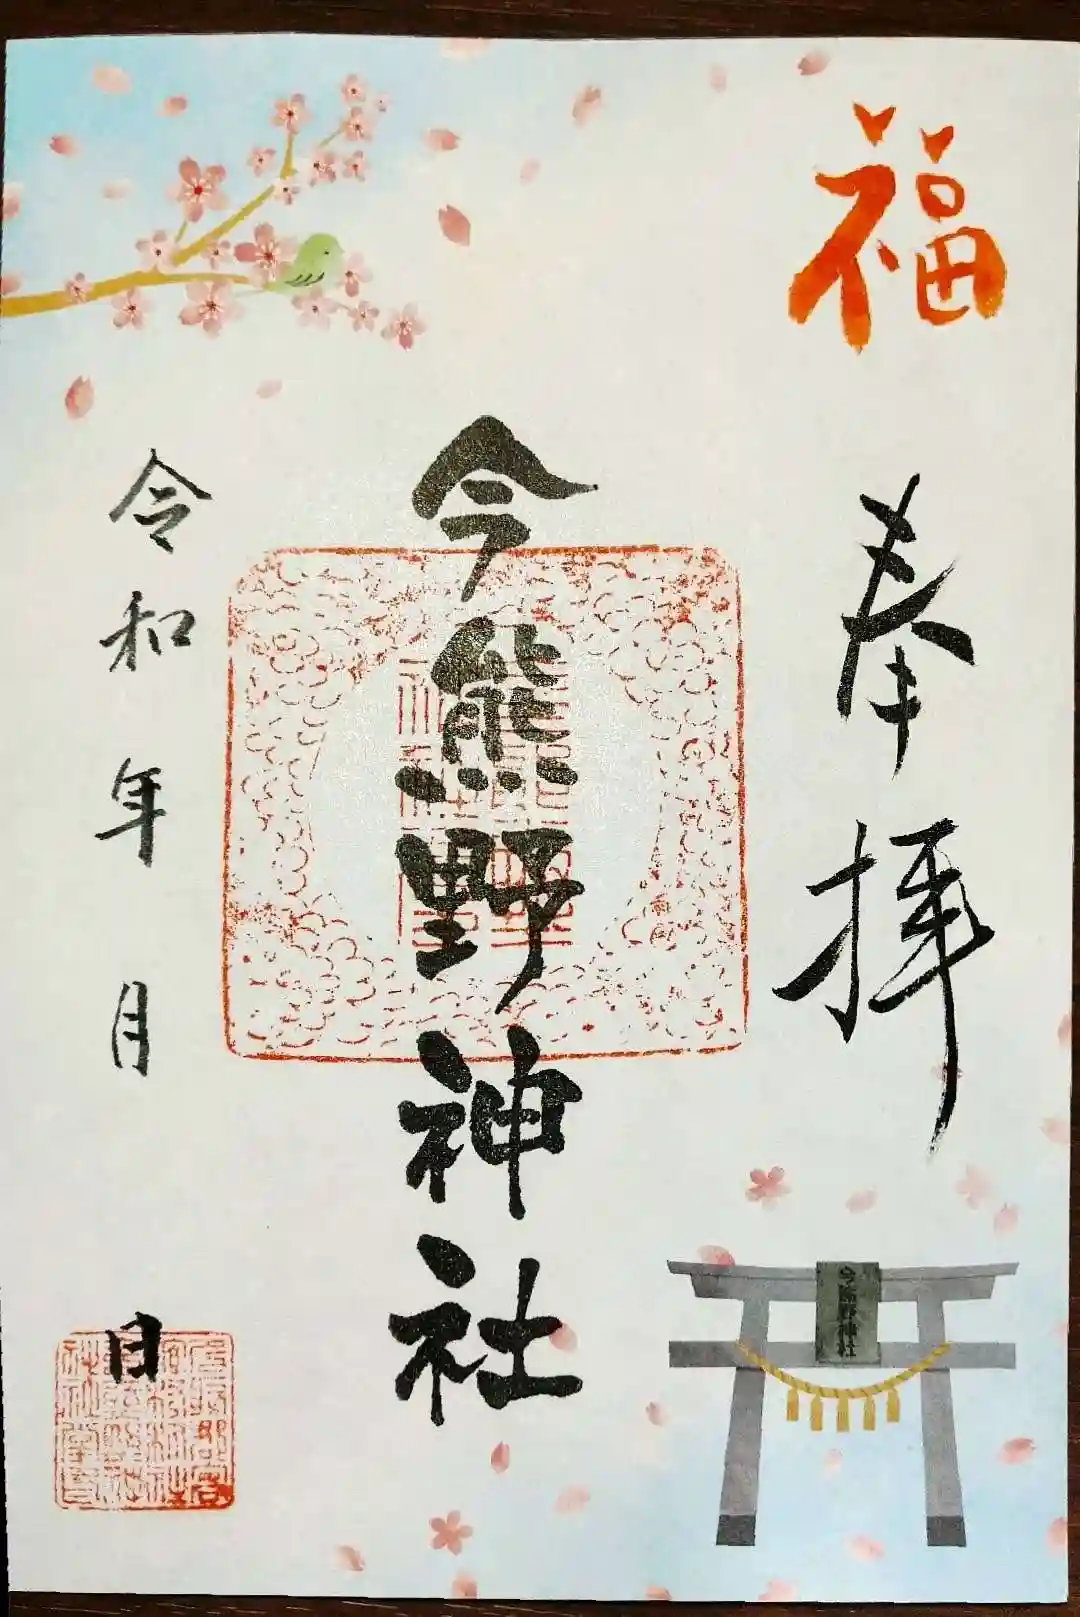 福
奉拝
今熊野神社
令和年月日
今熊野神社